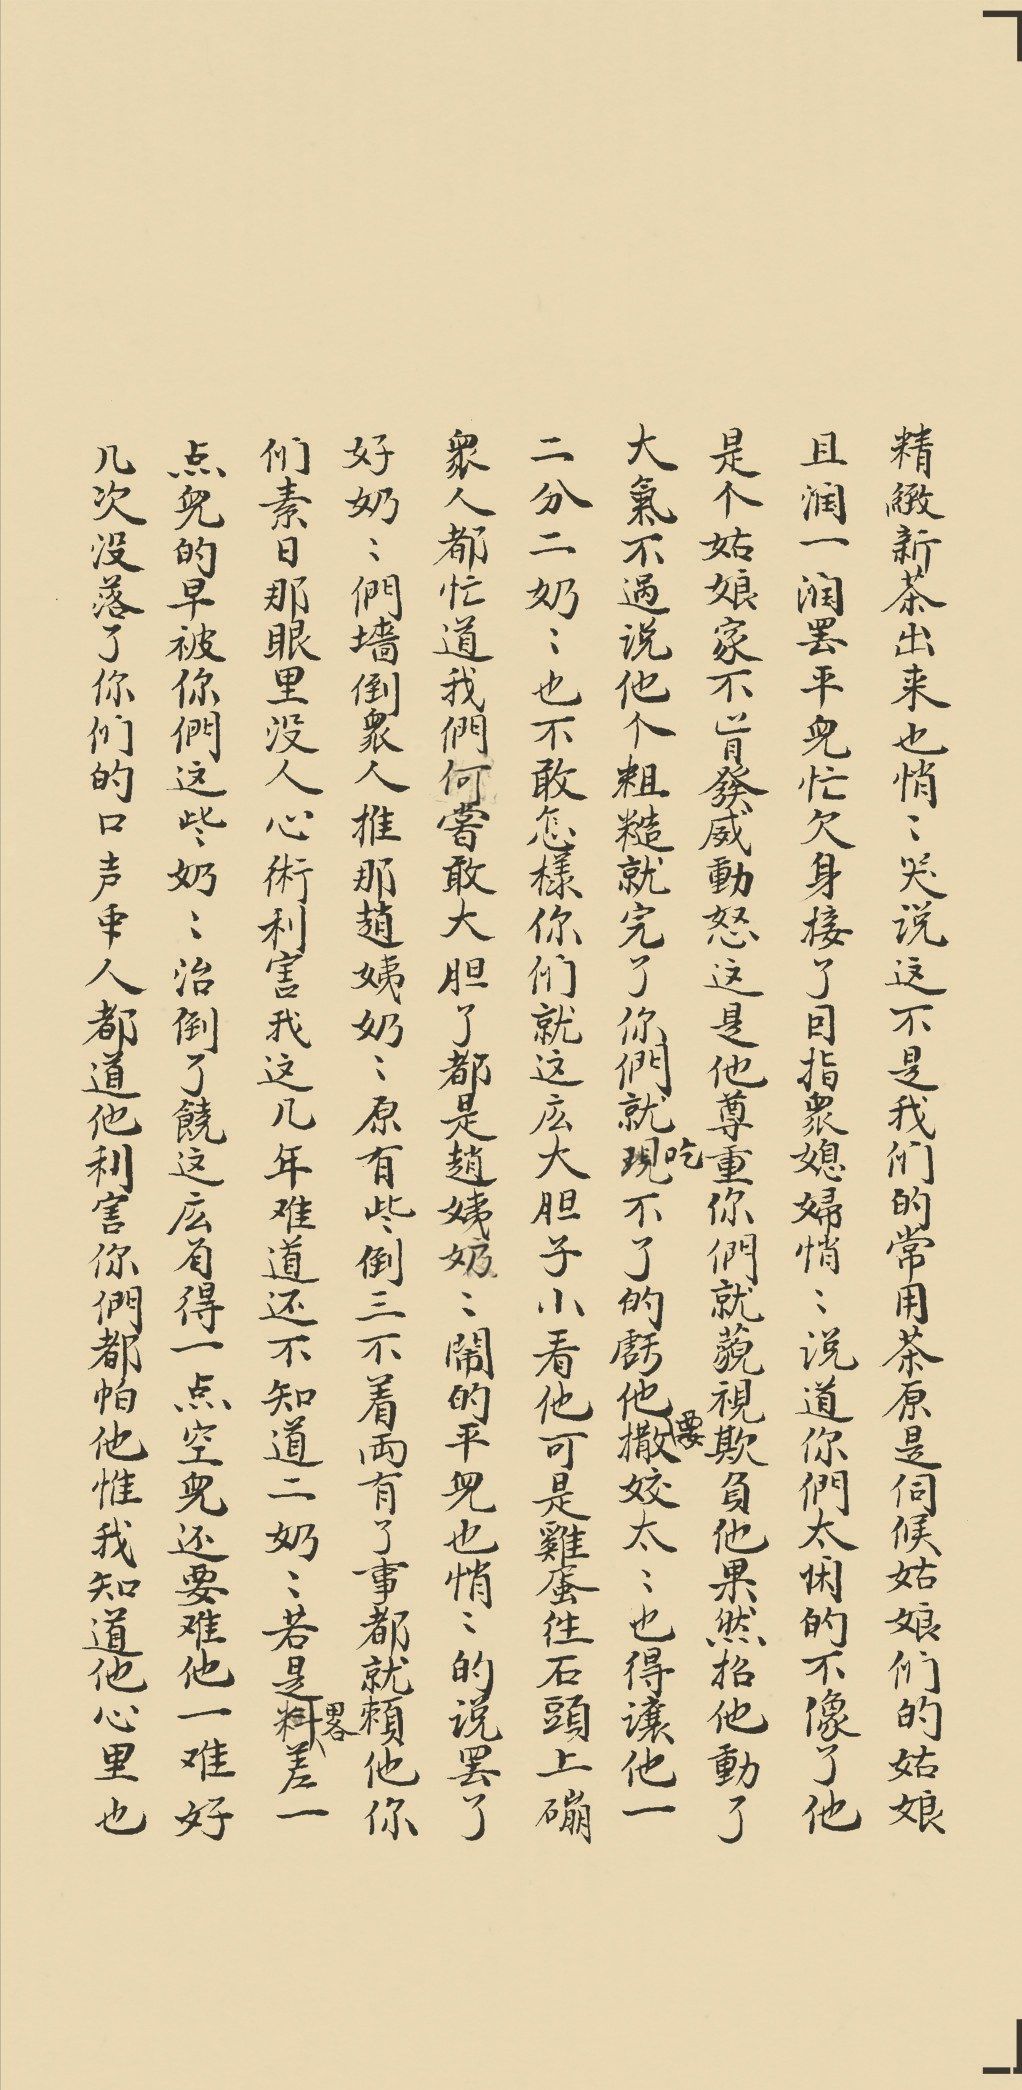 精緻新茶出来也悄〻哭说这不是我们的常用茶原是伺候姑娘们的姑娘
且润一润罢平兒忙欠身接了因指衆媳婦悄〻说道你們太闲的不像了他
是个姑娘家不肯發威動怒这是他尊重你們就藐視欺負他果然招他動了
大氣不过说他个粗糙就完了你們就現吃不了的虧他撒要姣太〻也得讓他一
二分二奶〻也不敢怎樣你们就这庅大胆子小看他可是雞蛋往石頭上硼
衆人都忙道我們何嘗敢大胆了都是趙姨奶〻鬧的平兒也悄〻的说罢了
好奶〻們墻倒衆人推那趙姨奶〻原有些倒三不着両有了事都就頼他你
们素日那眼里没人心術利害我这几年难道还不知道二奶〻若是料畧差一
点兒的早被你們这些奶〻治倒了饒这庅着得一点空兒还要难他一难好
几次没落了你们的口声衆人都道他利害你們都怕他惟我知道他心里也